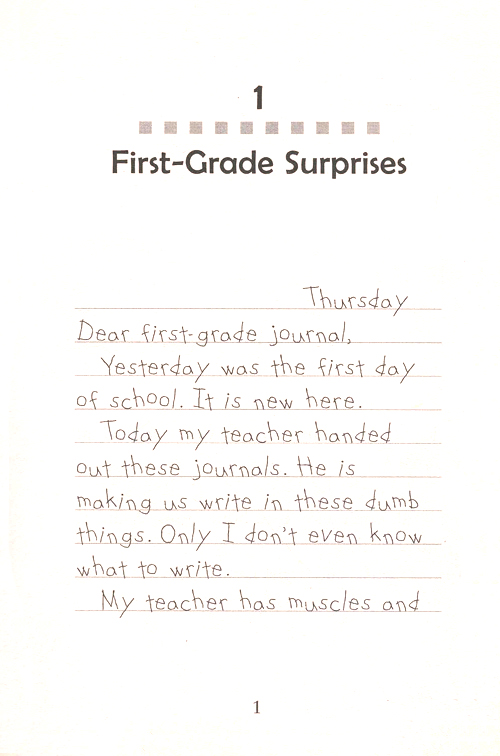 1
First-Grade Surprises
Thursday
Dear first-grade journal,
Yesterday was the first day
of school. It is new here.
Today my teacher handed
out these journals. He is
making us write in these dumb
things. Only I don't even know
what to write.
My teacher has muscles and
1